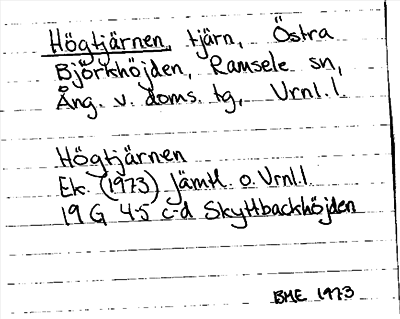 Högtjärnen, tjärn, Östra
Björkhöjden, Ramsele sn,
Ång. v. doms. tg, Vrnl. l.
Högtjärnen
Ek. (1973) Jämtl. o. Vrnl. l
19 G 4-5 c-d Skyttbackhöjden
BME 1973